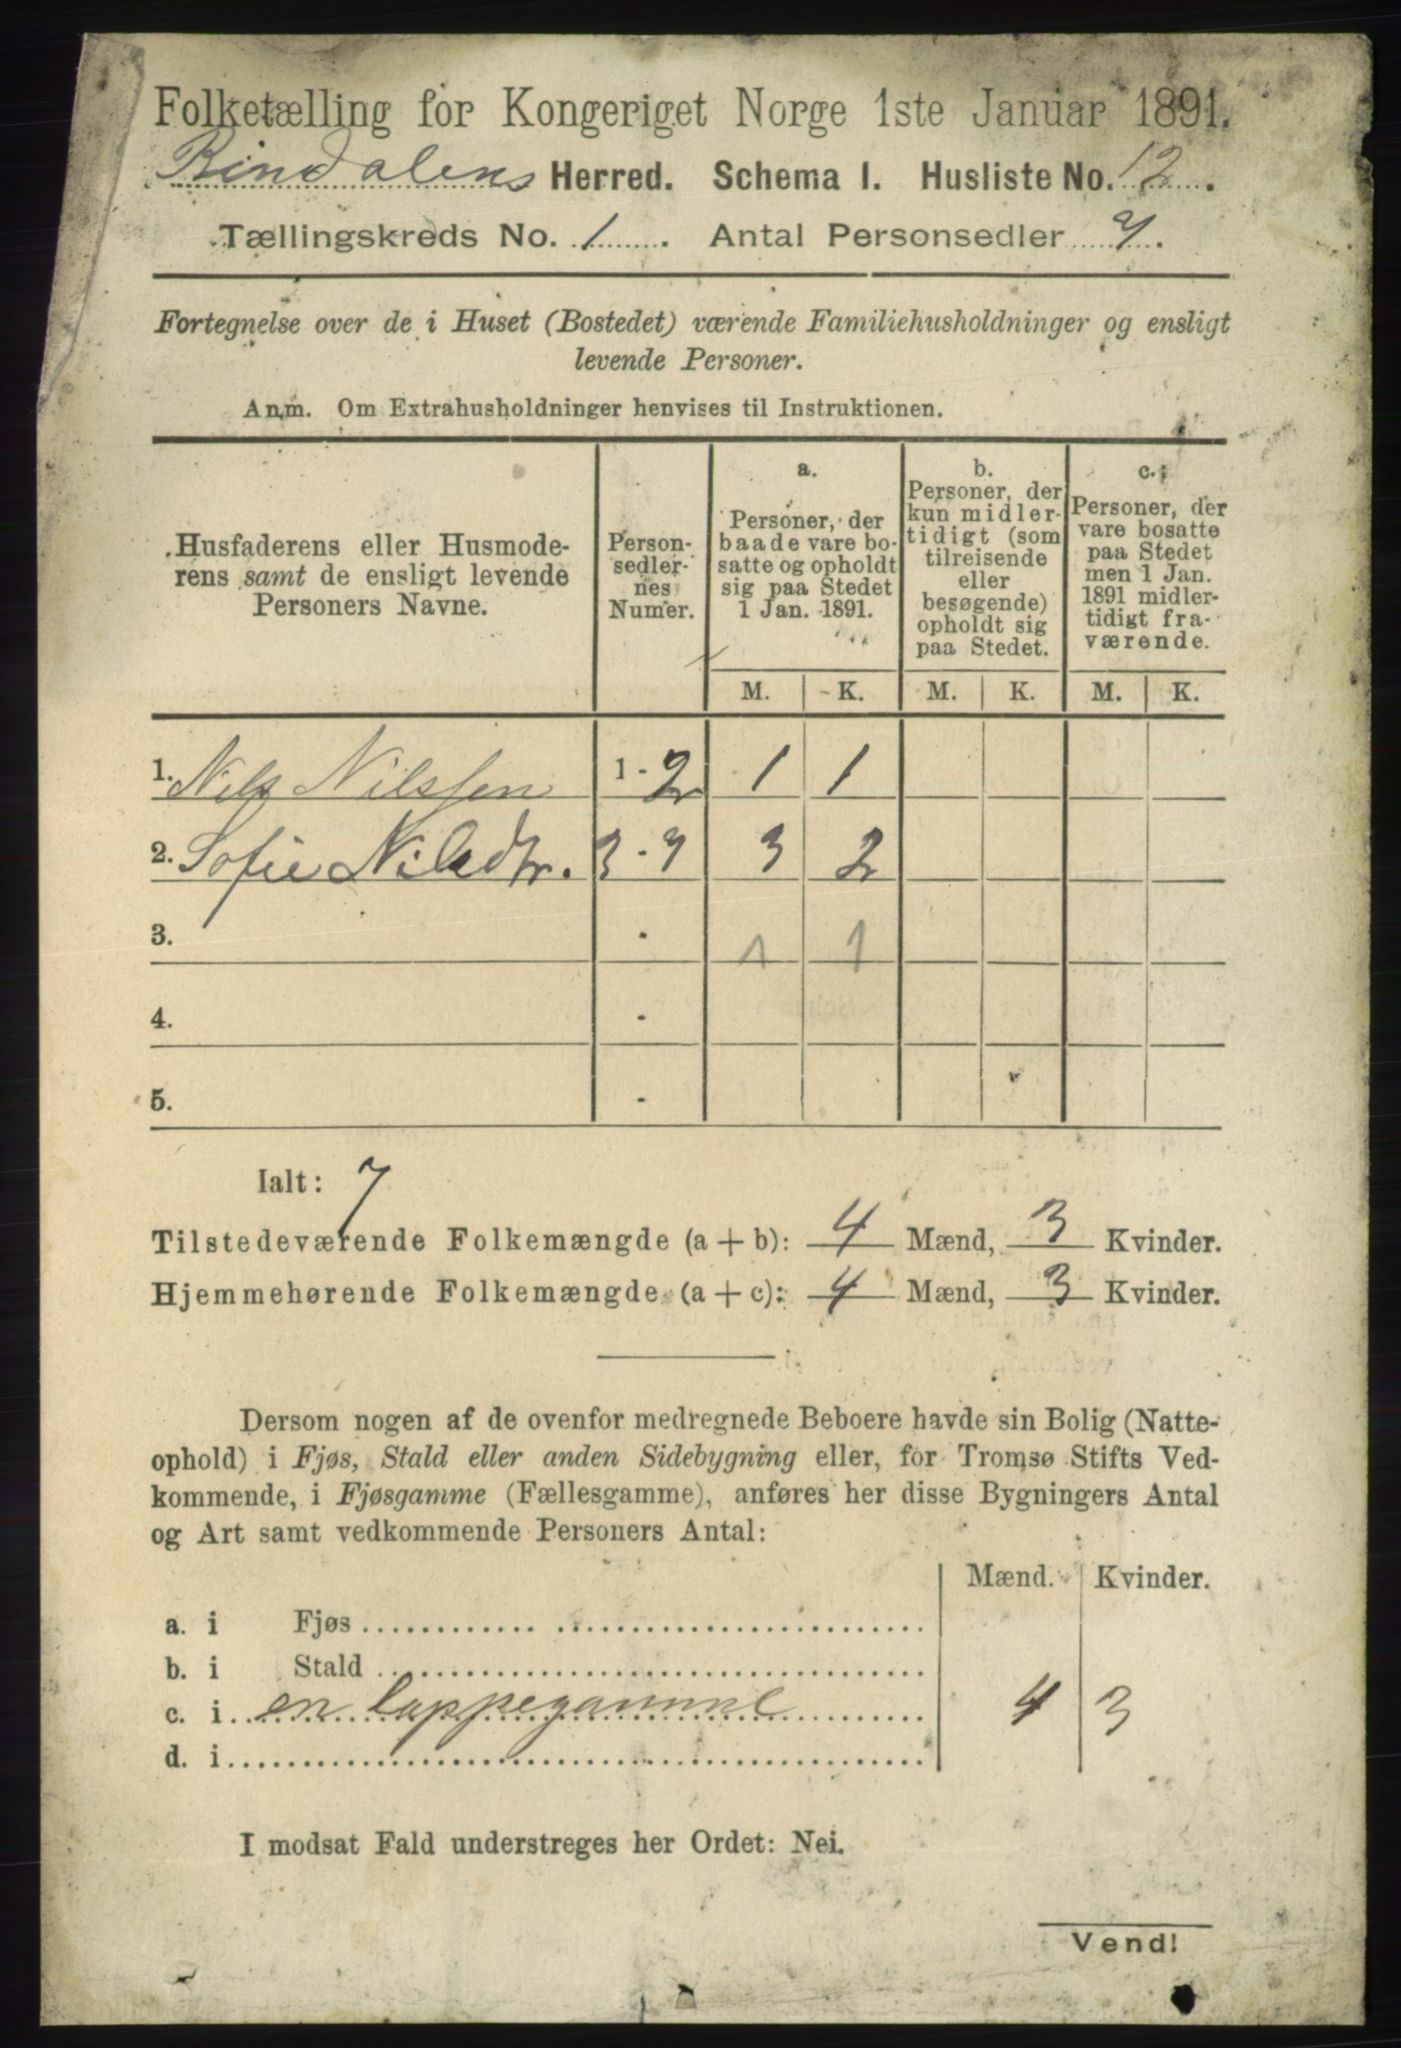 Folketælling for Kongeriget Norge 1ste Januar 1891.
Rindalens Herred. Schema I. Husliste No. 12.
Tællingskreds No. 1. Antal Personsedler 7.
Fortegnelse over de i Huset (Bostedet) værende Familiehusholdninger og ensligt
levende Personer.
Anm. Om Extrahusholdninger henvises til Instruktionen.
Husfaderens eller Husmode-
rens samt de ensligt levende
Personers Navne.
Person-
sedler-
nes
Numer.
a.
Personer, der
baade vare bo-
satte og opholdt
sig paa Stedet
1 Jan. 1891.
b.
Personer, der
kun midler-
tidigt (som
tilreisende
eller
besøgende)
opholdt sig
paa Stedet.
c.
Personer, der
vare bosatte
paa Stedet
men 1 Jan.
1891 midler-
tidigt fra-
værende.
M. K. M. K. M. K.
1. Nils Nilssen 1 - 2 1 1
2. Sofie Nilsdtr. 3 - 7 3 2
3. - 1 1
4. -
5. -
Ialt: 7
Tilstedeværende Folkemængde (a + b): 4 Mænd, 3 Kvinder.
Hjemmehørende Folkemængde (a + c): 4 Mænd, 3 Kvinder.
Dersom nogen af de ovenfor medregnede Beboere havde sin Bolig (Natte-
ophold) i Fjøs, Stald eller anden Sidebygning eller, for Tromsø Stifts Ved-
kommende, i Fjøsgamme (Fællesgamme), anføres her disse Bygningers Antal
og Art samt vedkommende Personers Antal:
Mænd. Kvinder.
a. i Fjøs
b. i Stald
c. i en lappegamme 4 3
d. i
I modsat Fald understreges her Ordet: Nei.
Vend!